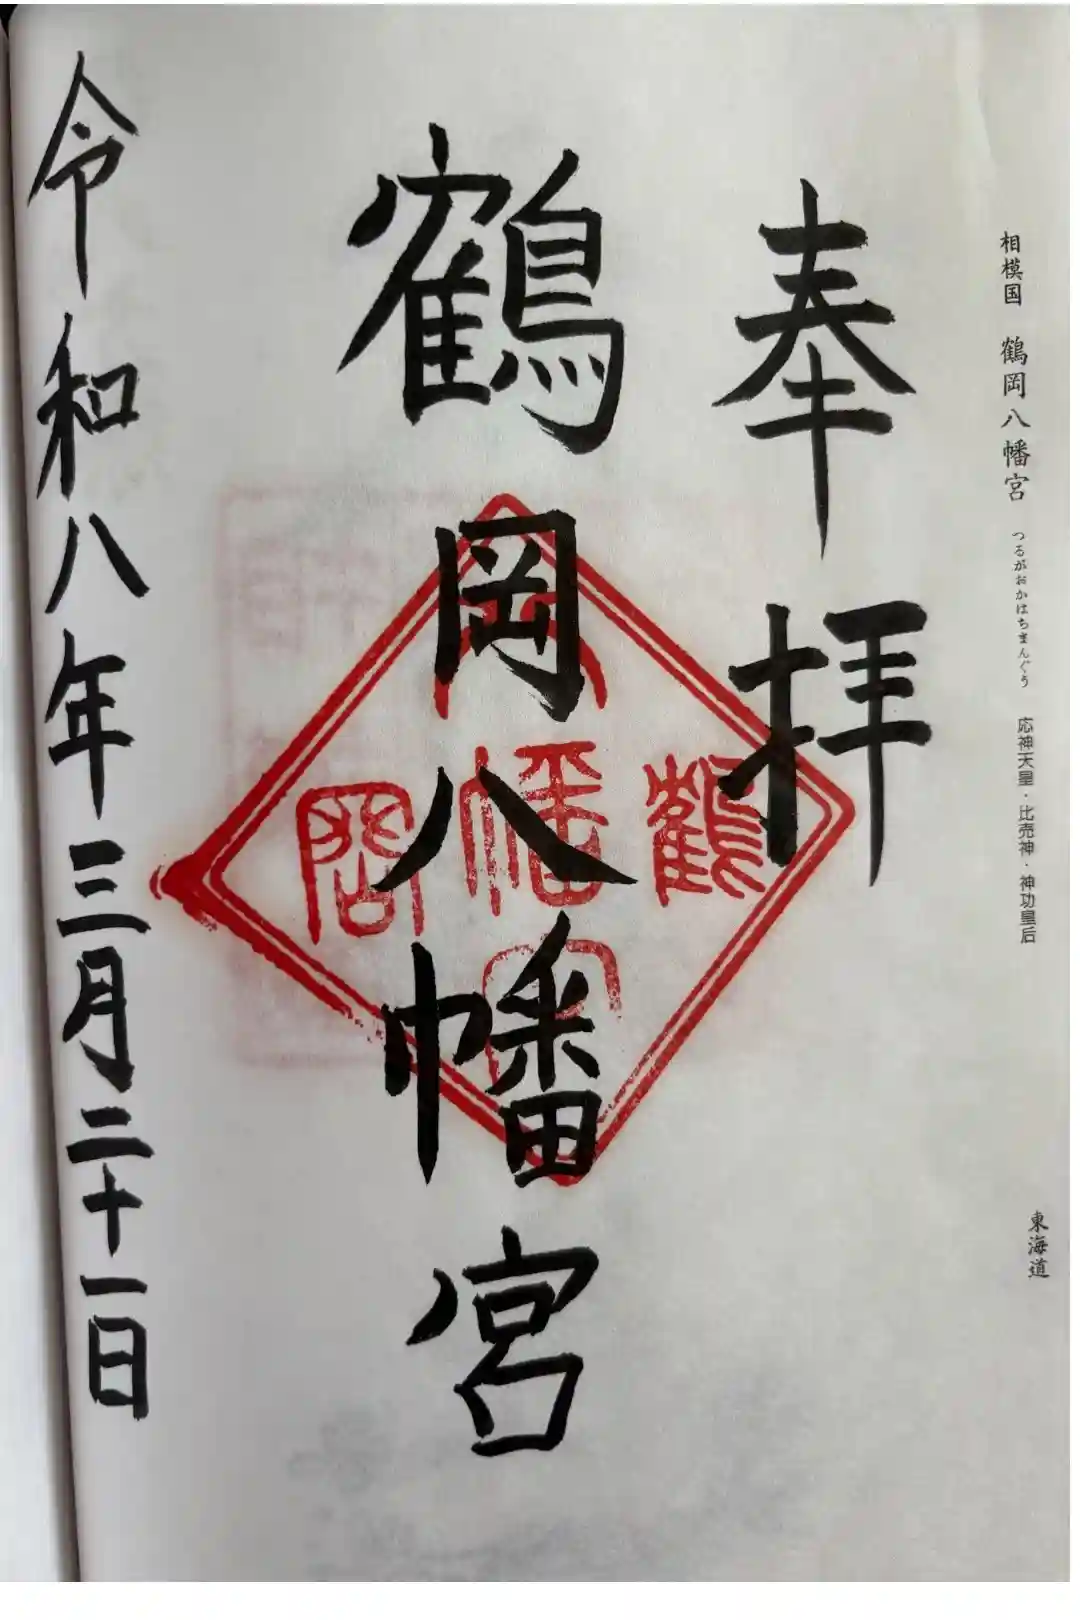 相模国 鶴岡八幡宮 つるがおかはちまんぐう 応神天皇・比売神・神功皇后
東海道
奉拝
鶴岡八幡宮
令和八年三月二十一日
鶴
八幡宮
岡